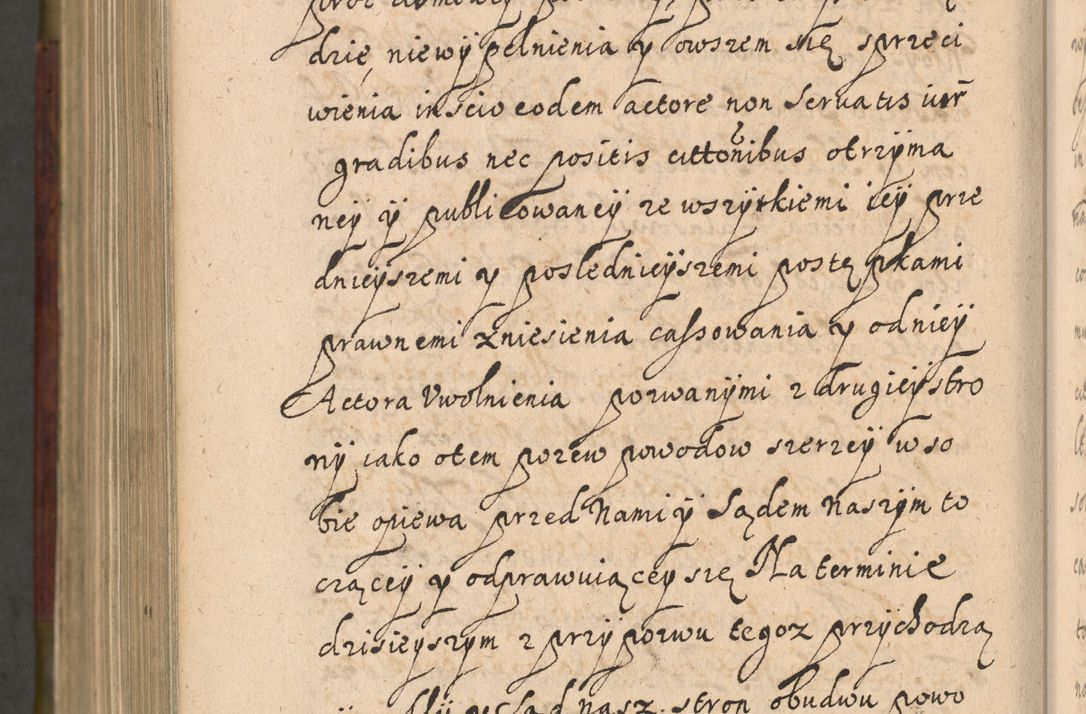 dzie, niewÿpełnienia y owszem się sprzeci
wienia inscio eodem actore non servatis iur
gradibus nec positis cittonibus otrzÿma
neÿ ÿ publicowaneÿ ze wszÿtkiemi ieÿ prze
dnieÿszemi y poslednieÿszemi postę pkami
prawnemi zniesienia cassowania y odnieÿ
Actora Vwolnienia pozwanÿmi z drugieÿ stro
nÿ iako otem pozew powodow szerzeÿ wso
bie opiewa przed Nami ÿ Sądem Naszÿm to
cząceÿ y odprawuiąceÿ się Na terminie
dzisieÿszÿm z przÿpozwu tegoz przÿchodzą
Sąd nasz stron obudwu powo